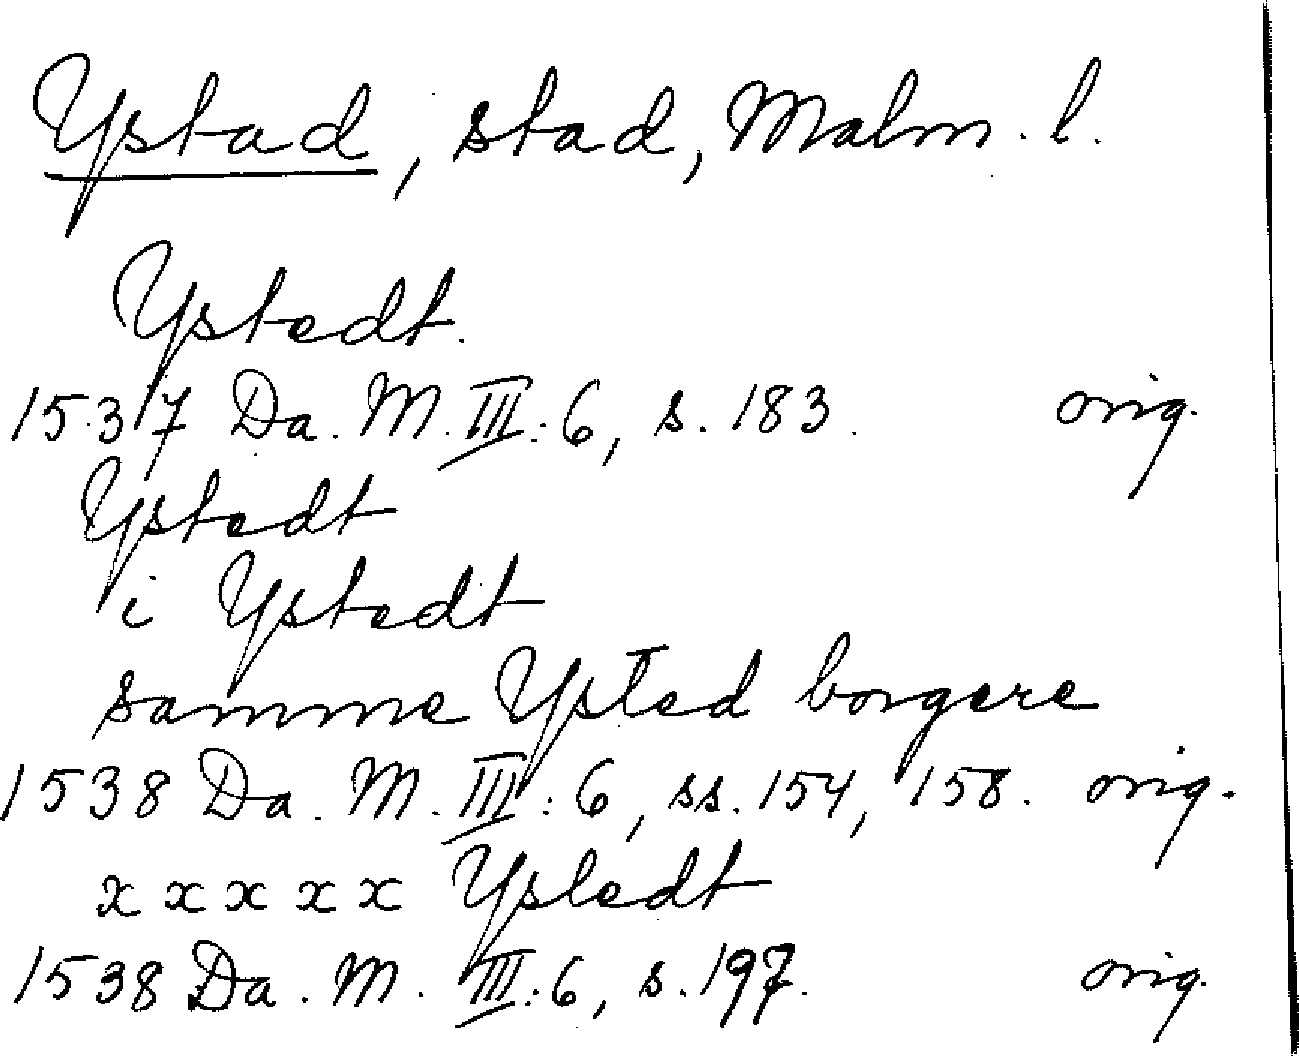 Ystad, stad, Malm. l.
Ystedt.
1537 Da. M. III: 6, s. 183. orig.
Ystedt
i Ystedt
samme Ysted borgere
1538 Da. M. III: 6, ss. 154, 158. orig.
x x x x x Ystedt
1538 Da. M. III: 6, s. 197. orig.